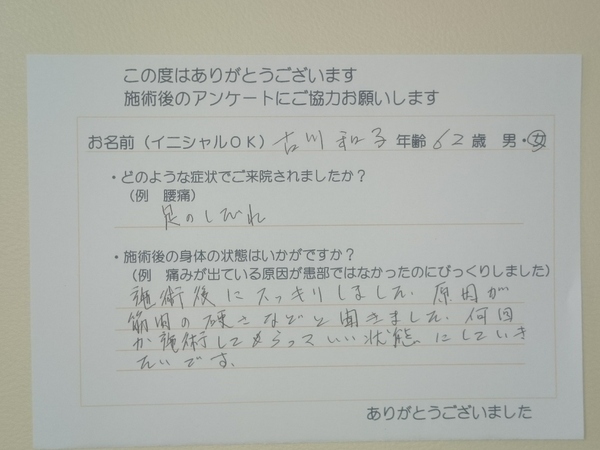 この度はありがとうございます
施術後のアンケートにご協力お願いします
お名前(イニシャルOK) 古川 和子 年齢 62 歳 男・女
・どのような症状でご来院されましたか?
(例 腰痛)
足のしびれ
・施術後の身体の状態はいかがですか?
(例 痛みが出ている原因が患部ではなかったのにびっくりしました)
施術後にスッキリしました。原因が
筋肉の硬さなどと聞きました。何回
か施術してもらっていい状態にしていき
たいです。
ありがとうございました